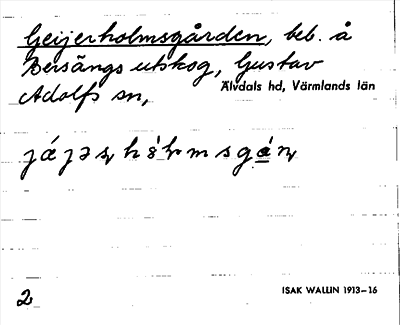 Geijerholmsgården, beb. å
Bersängs utskog, Gustav
Adolfs sn, Älvdals hd, Värmlands län
2
ISAK WALLIN 1913–16